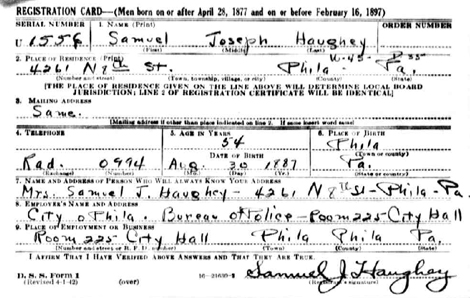 REGISTRATION CARD—(Men born on or after April 28, 1877 and on or before February 16, 1897)
SERIAL NUMBER 1. NAME (Print) ORDER NUMBER
U 1556 Samuel Joseph Haughey
(First) (Middle) (Last)
2. PLACE OF RESIDENCE (Print)
4261 N 8th St. Phila - Pa.
(Number and street) (Town, township, village, or city) (County) (State)
[THE PLACE OF RESIDENCE GIVEN ON THE LINE ABOVE WILL DETERMINE LOCAL BOARD
JURISDICTION; LINE 2 OF REGISTRATION CERTIFICATE WILL BE IDENTICAL]
3. MAILING ADDRESS
Same.
[Mailing address if other than place indicated on line 2. If same insert word same]
4. TELEPHONE 5. AGE IN YEARS 6. PLACE OF BIRTH
54 Phila
DATE OF BIRTH (Town or county)
Rad. 0994 Aug. 30 1887 Pa.
(Exchange) (Number) (Mo.) (Day) (Yr.) (State or country)
7. NAME AND ADDRESS OF PERSON WHO WILL ALWAYS KNOW YOUR ADDRESS
Mrs. Samuel J. Haughey - 4261 N 8th St - Phila - Pa.
8. EMPLOYER'S NAME AND ADDRESS
City of Phila. Bureau of Police - Room 225 - City Hall
9. PLACE OF EMPLOYMENT OR BUSINESS
Room 225 - City Hall Phila Phila Pa.
(Number and street or R. F. D. number) (Town) (County) (State)
I AFFIRM THAT I HAVE VERIFIED ABOVE ANSWERS AND THAT THEY ARE TRUE.
D. S. S. Form 1
(Revised 4-1-42) (over) Samuel J Haughey